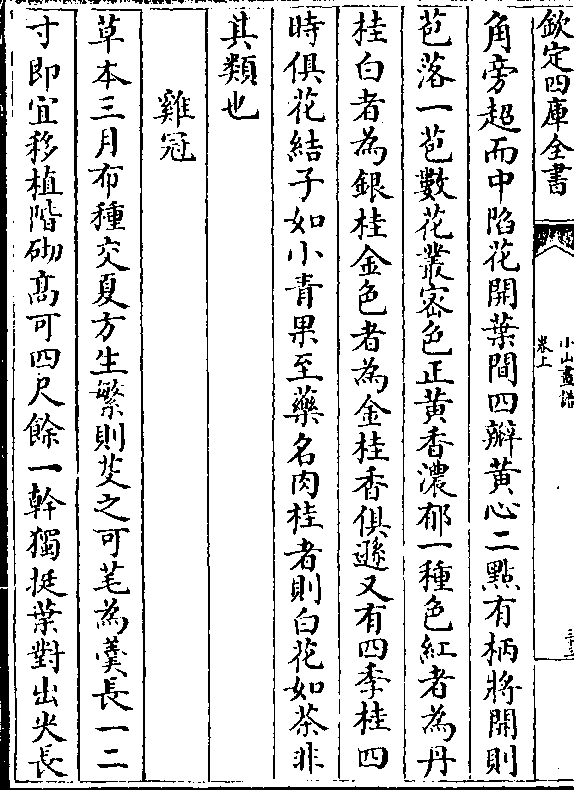 欽定四庫全書
小山畫譜
卷上
角旁起而中陷花開葉間四瓣黄心二點有柄將開則
苞落一苞數花叢宻色正黄香濃郁一種色紅者為丹
桂白者為銀桂金色者為金桂香俱遜又有四季桂四
時俱花結子如小青果至藥名肉桂者則白花如茶非
其類也
雞冠
草本三月布種交夏方生繁則芟之可芼為羮長一二
寸即宜移植階砌髙可四尺餘一幹獨挺葉對出尖長